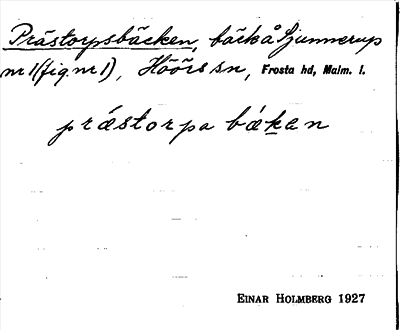 Prästorpsbäcken, bäck å Sjunnerup
nr 1 (fig. nr 1), Höörs sn, Frosta hd, Malm. l.
prástorpa bákan
EINAR HOLMBERG 1927